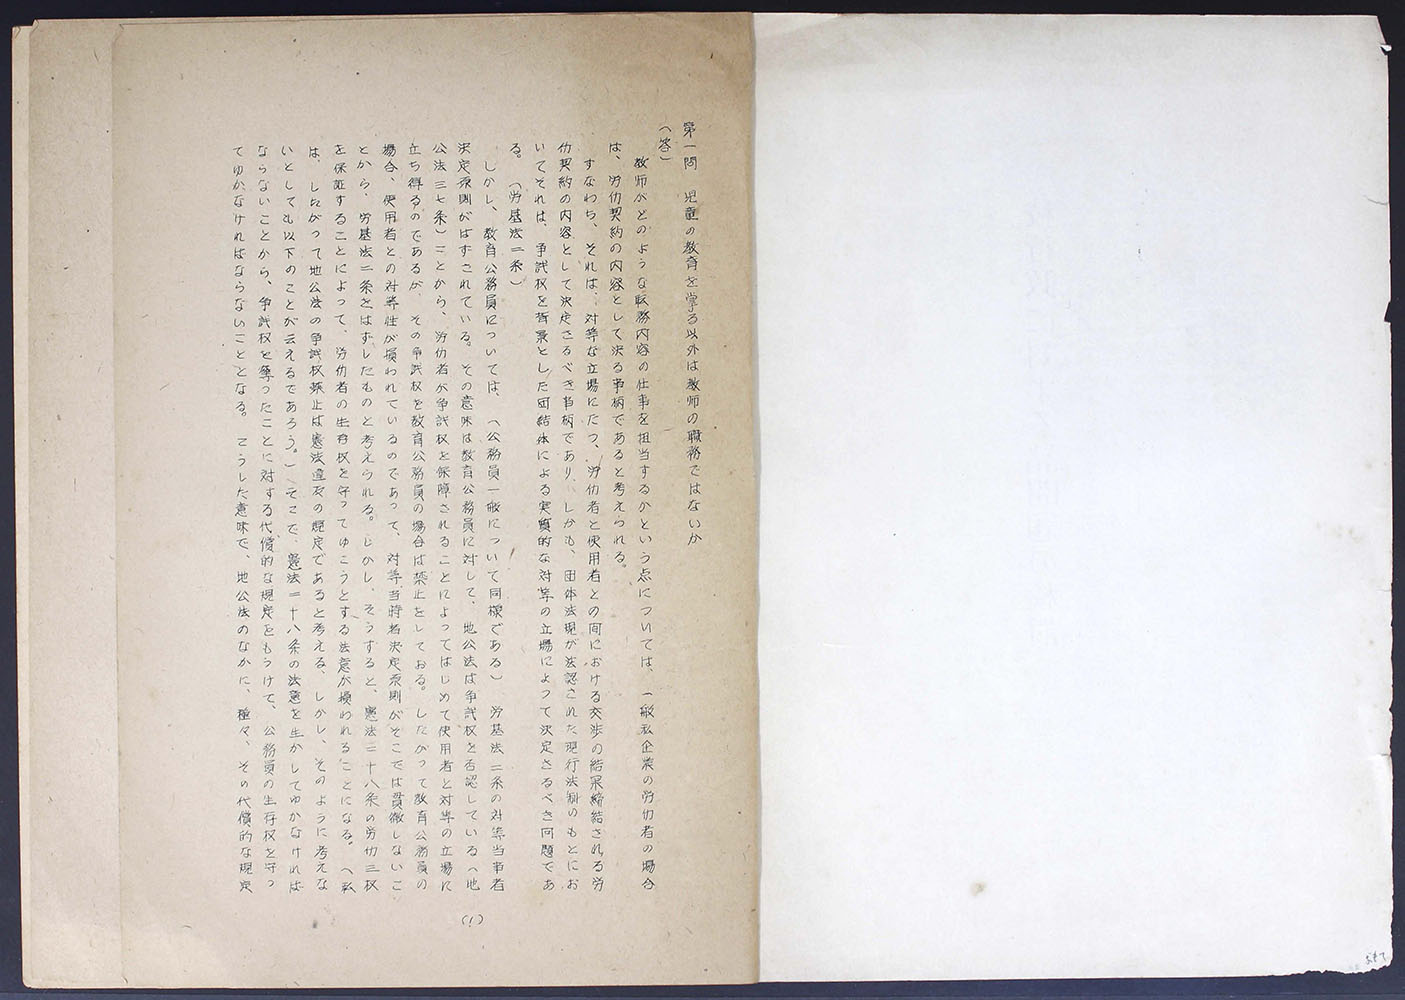 第一問　児童の教育を掌る以外は教師の職務ではないか
（答）
教師がどのような職務内容の仕事を担当するかという点については、一般私企業の労仂者の場合
は、労仂契約の内容として決る事柄であると考えられる。
すなわち、それは、対等な立場にたつ、労仂者と使用者との間における交渉の結果締結される労
仂契約の内容として決定さるべき事柄であり、しかも、団体法規が法認された現行法制のもとにお
いてそれは、争議权を背景とした団結体による実質的な対等の立場によって決定さるべき问題であ
る。（労基法二条）
しかし、教育公務員については、（公務員一般について同様である）労基法二条の対等当事者
決定原則がはずされている。その意味は教育公務員に対して、地公法は争議权を否認している（地
公法三七条）ことから、労仂者が争議权を保障されることによってはじめて使用者と対等の立場に
立ち得るのであるが、その争議权を教育公務員の場合は禁止をしておる。したがって教育公務員の
場合、使用者との対等性が損われているのであって、対等当時者決定原則がそこでは貫徹しないこ
とから、労基法二条をはずしたものと考えられる。しかし、そうすると、憲法二十八条の労仂三权
を保証することによって、労仂者の生存权を守ってゆこうとする法意が損われることになる。（私
は、したがって地公法の争議权禁止は憲法違反の規定であると考える、しかし、そのように考えな
いとしても以下のことが云えるであろう。）そこで、憲法二十八条の法意を生かしてゆかなければ
ならないことから、争議权を奪ったことに対する代償的な規定をもうけて、公務員の生存权を守っ
てゆかなければならないこととなる。こうした意味で、地公法のなかに、種々、その代償的な規定
(1)